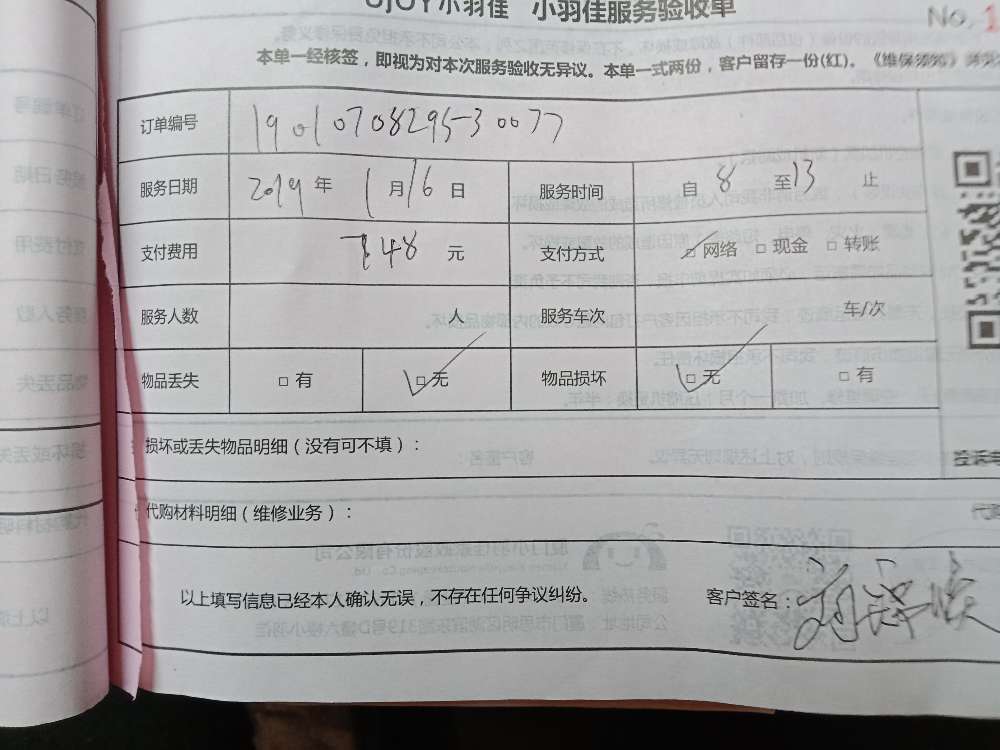 UJOY小羽佳 小羽佳服务验收单
No.1
本单一经核签，即视为对本次服务验收无异议。本单一式两份，客户留存一份(红)。《维保须知》
订单编号 1901070829530077
服务日期 2019年 1月16日 服务时间 自 8 至13 止
支付费用 748 元 支付方式 □网络 □现金 □转账
服务人数 人 服务车次 车/次
物品丢失 □有 □无 物品损坏 □无 □有
损坏或丢失物品明细（没有可不填）：
代购材料明细（维修业务）：
以上填写信息已经本人确认无误，不存在任何争议纠纷。 客户签名：